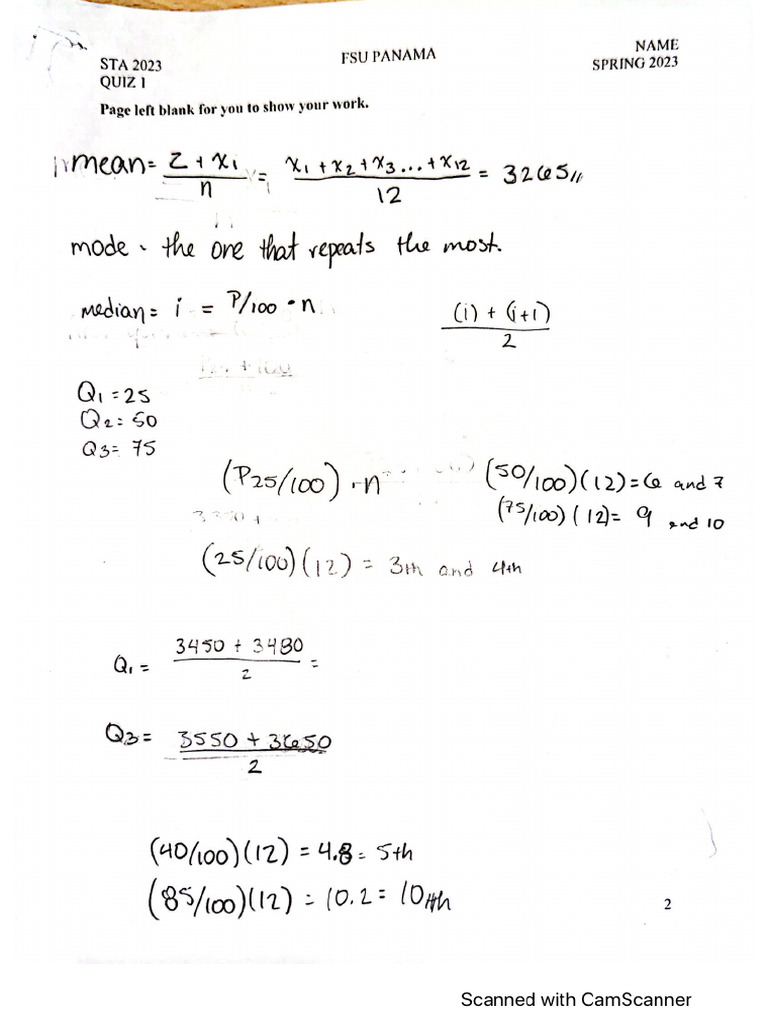 NAME
FSU PANAMA
STA 2023
SPRING 2023
QUIZ 1
Page left blank for you to show your work.
mean= Σ + x1 / n = x1 + x2 + x3 ... + x12 / 12 = 3265 //
mode - the one that repeats the most.
median= i = P/100 • n
(i) + (i+1) / 2
Q1 = 25
Q2 = 50
Q3 = 75
(P25/100) . n
(50/100)(12)=6 and 7
(75/100)(12)= 9 and 10
(25/100)(12) = 3th and 4th
Q1 = 3450 + 3480 / 2 =
Q3 = 3550 + 3650 / 2
(40/100)(12) = 4.8 = 5th
(85/100)(12) = 10.2 = 10th
2
Scanned with CamScanner